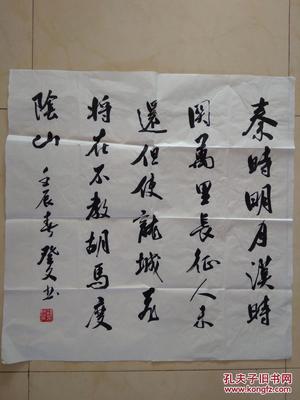 秦時明月漢時
関萬里長征人未
還但使龍城飛
將在不教胡馬度
陰山 壬辰春 文书
孔夫子旧书网